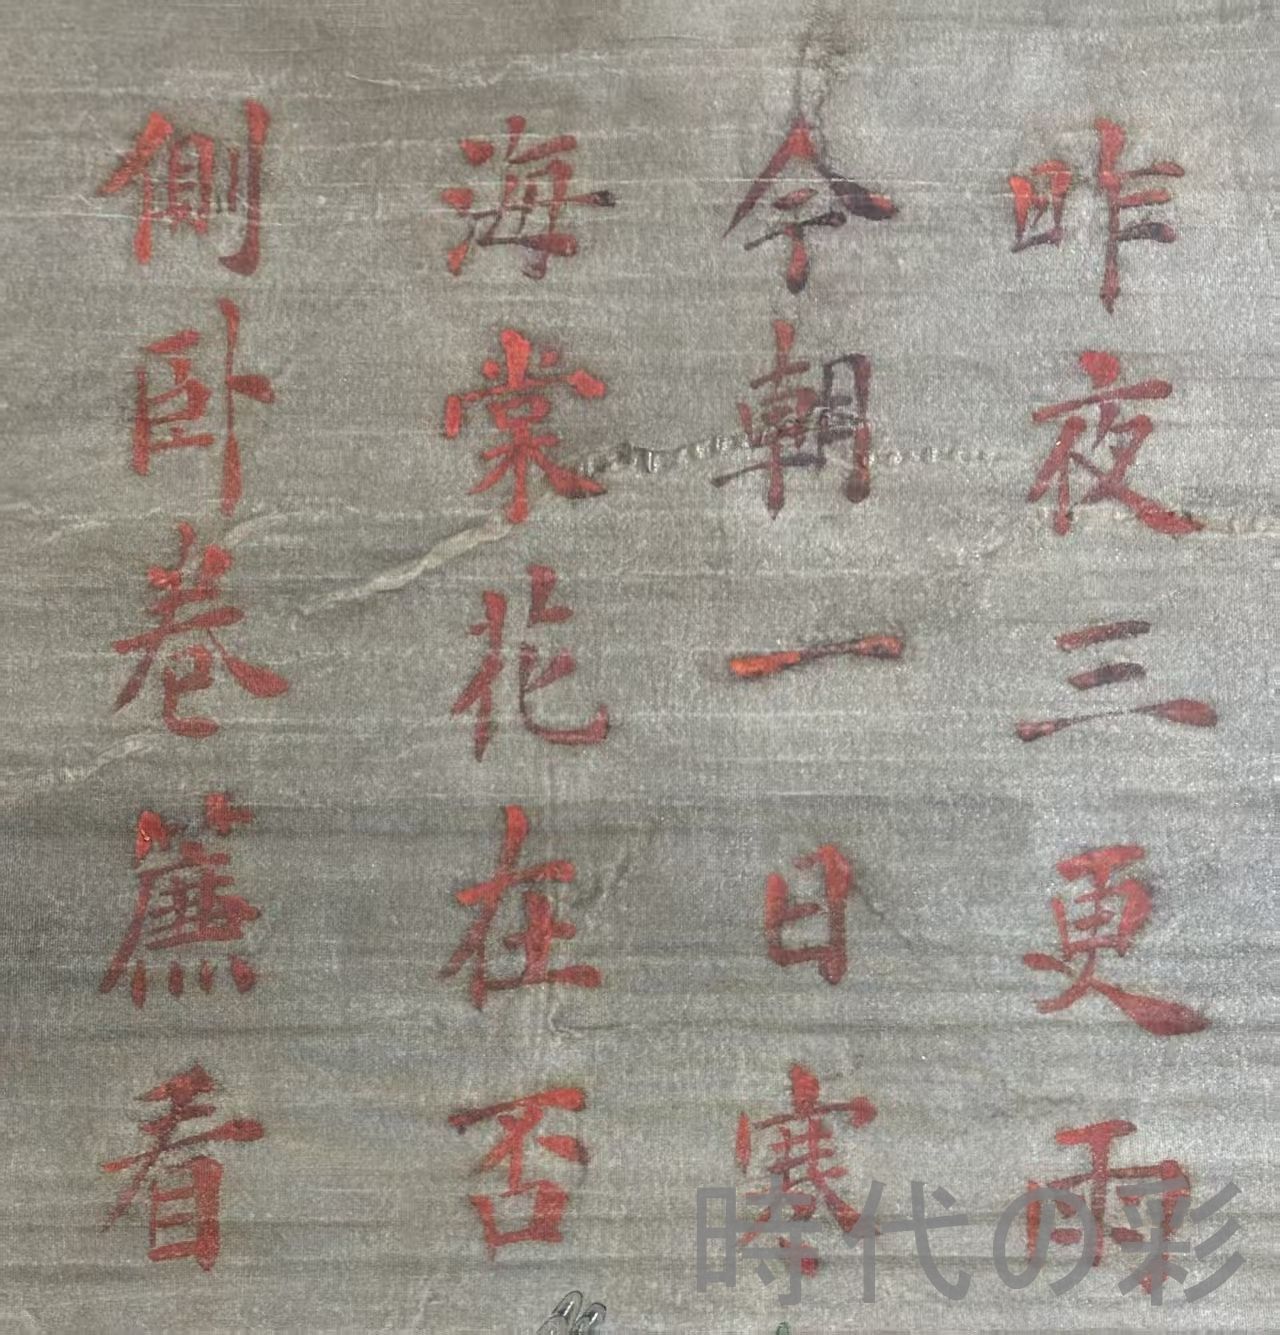 昨夜三更雨
今朝一日寒
海棠花在否
側卧卷簾看
時代の彩